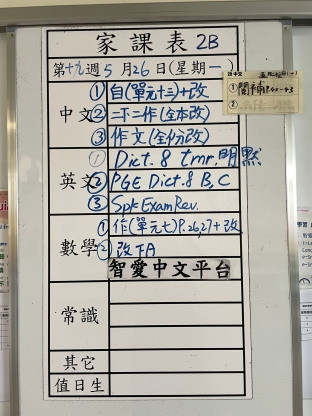 家課表 2B
第十九週 5月26日(星期一)
中文
① 自(單元十三)+改
② 二下二作(全本改)
③ 作文(全份改)
英文
① Dict. 8 tmr.
② PGE Dict.8 B, C
③ Spk Exam Rev.
數學
① 作(單元七)P.26,27+改
② 改TA
智愛中文平台
常識
其它
值日生
①
②